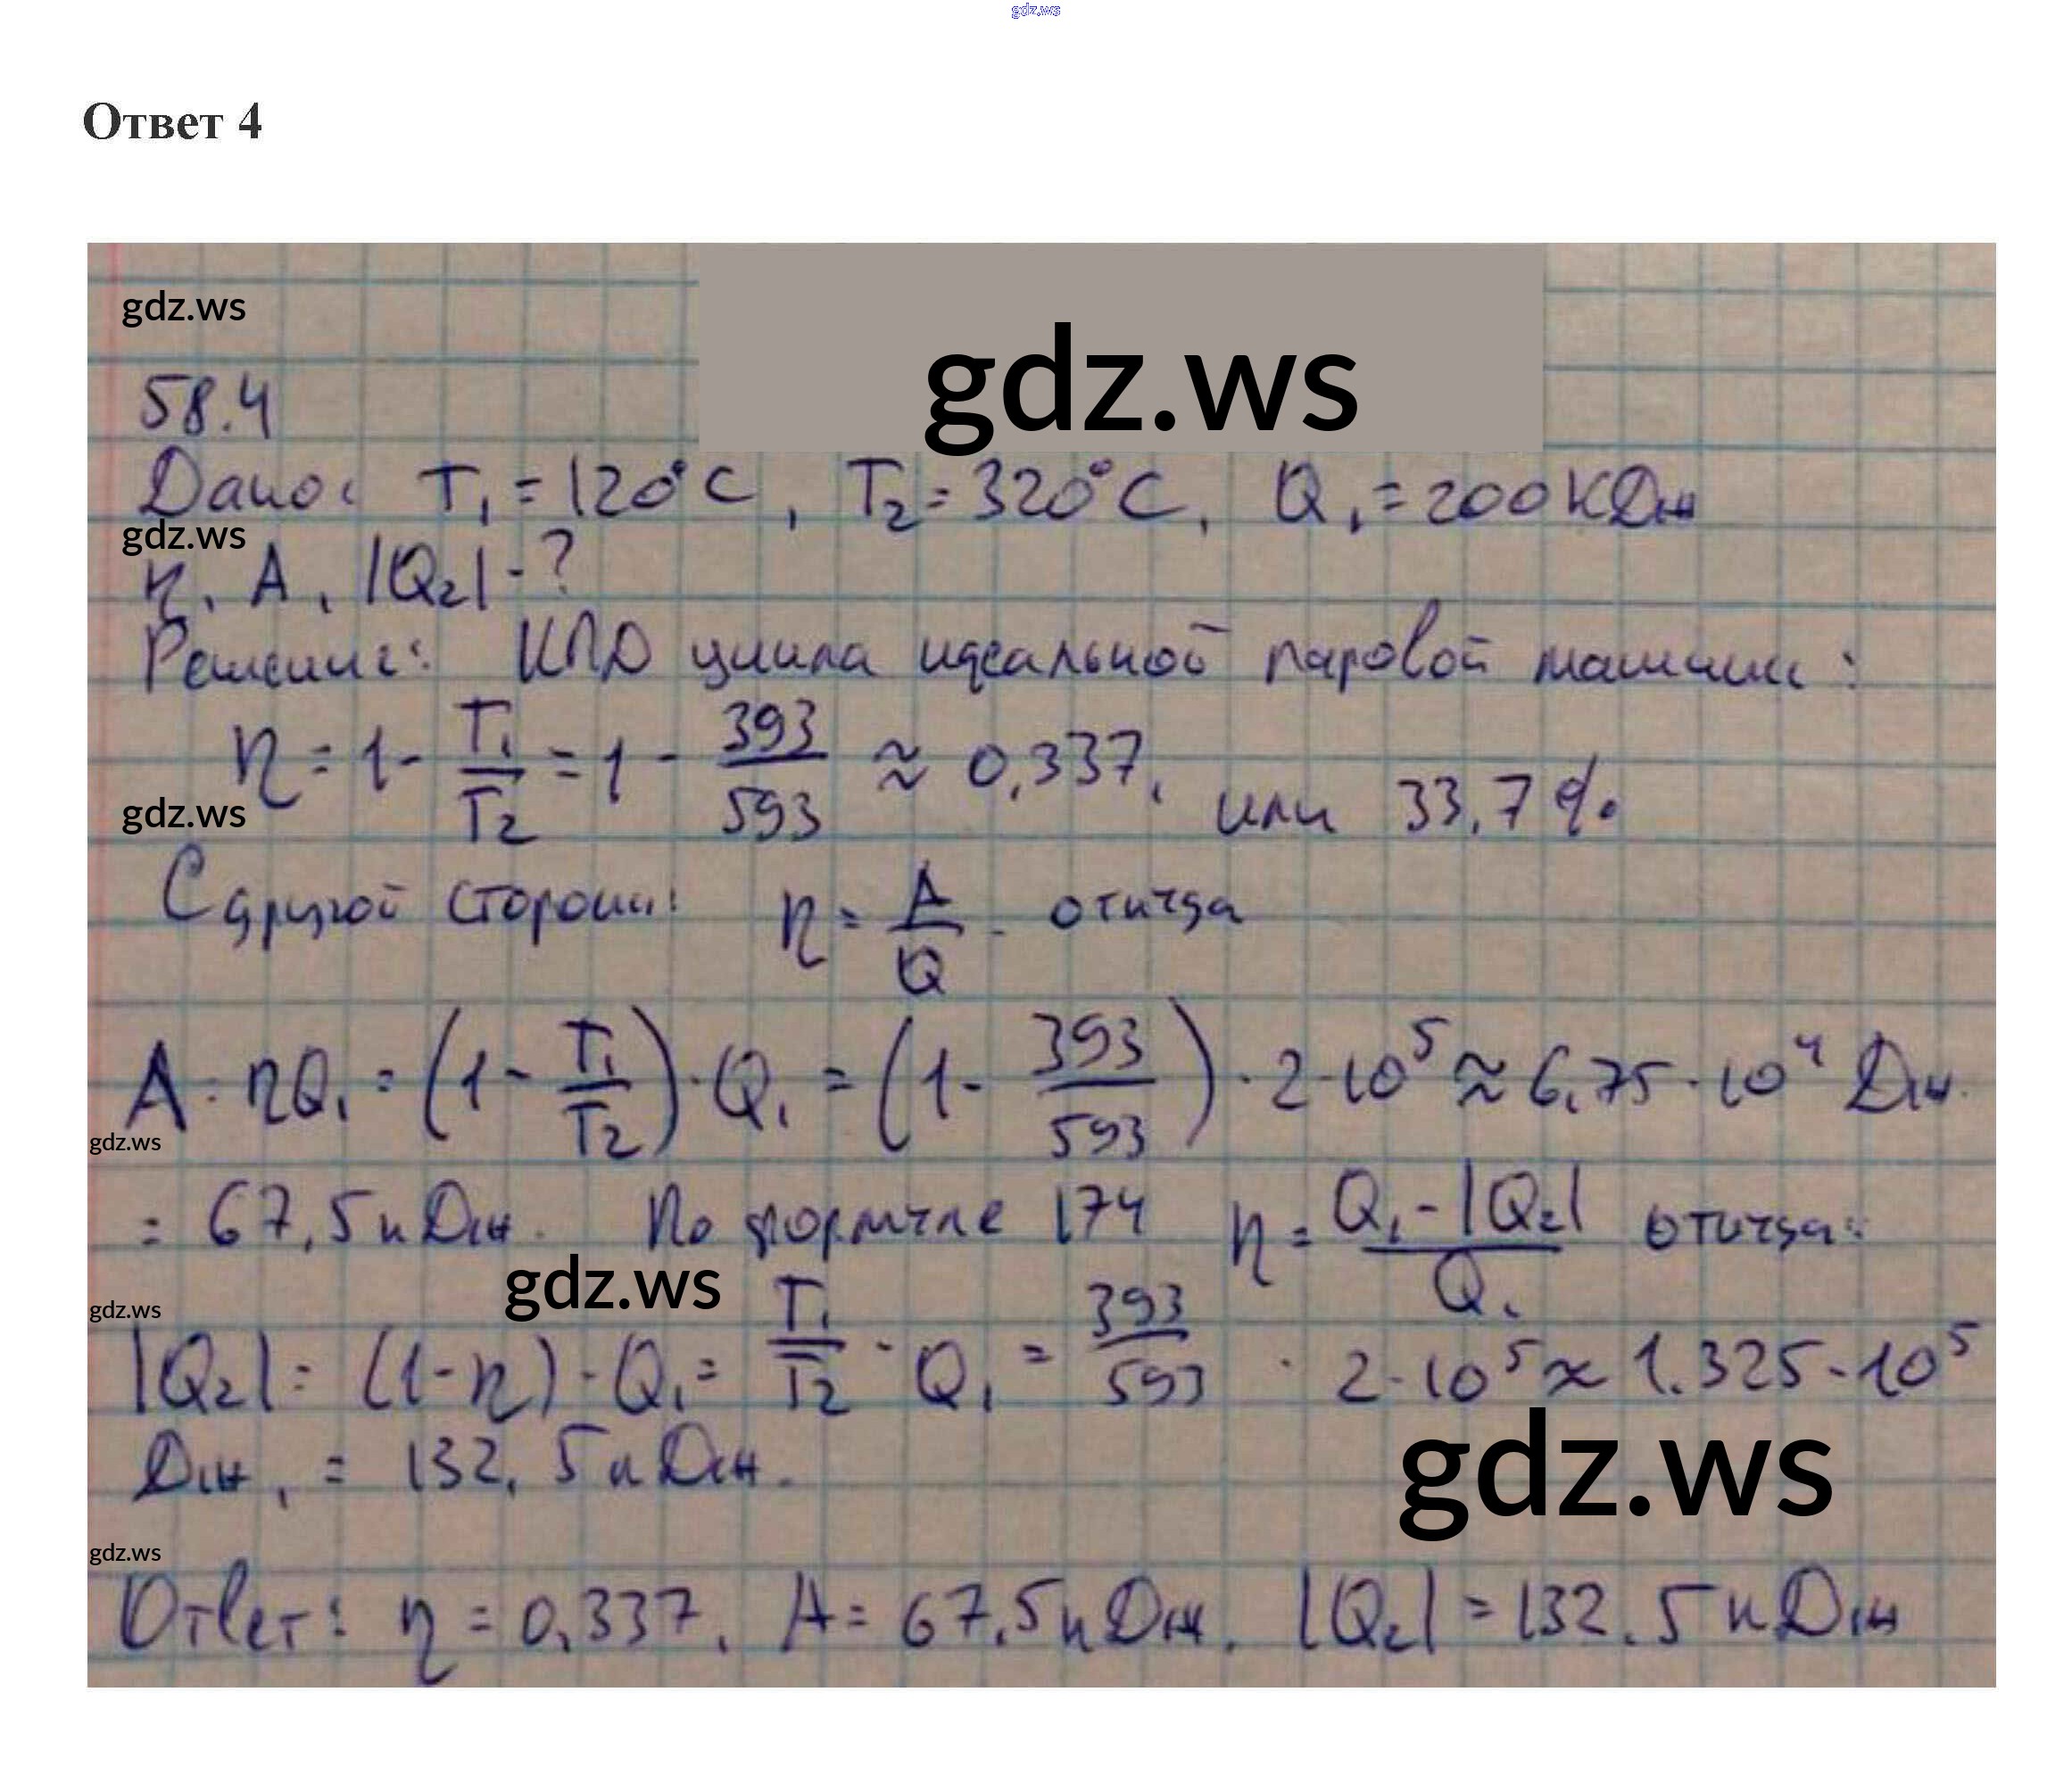 gdz.ws
Ответ 4
gdz.ws
gdz.ws
58.4
Дано: T₁ = 120°C, T₂ = 320°C, Q₁ = 200 кДж
gdz.ws
η, A, |Q₂| - ?
Решение: КПД цикла идеальной паровой машины:
η = 1 - T₁/T₂ = 1 - 393/593 ≈ 0,337, или 33,7%
gdz.ws
С другой стороны: η = A/Q - откуда
A = ηQ₁ = (1 - T₁/T₂) · Q₁ = (1 - 393/593) · 2·10⁵ ≈ 6,75·10⁴ Дж.
gdz.ws
= 67,5 кДж. По формуле 174 η = (Q₁ - |Q₂|)/Q₁ откуда:
gdz.ws
gdz.ws
|Q₂| = (1-η)·Q₁ = T₁/T₂ · Q₁ = 393/593 · 2·10⁵ ≈ 1.325·10⁵
Дж, = 132,5 кДж.
gdz.ws
gdz.ws
Ответ: η = 0,337, A = 67,5 кДж, |Q₂| = 132,5 кДж